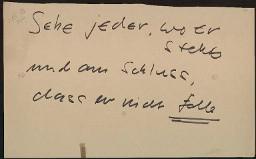 Sehe jeder, wo er
steht
und am Schluss,
dass er nicht Falle